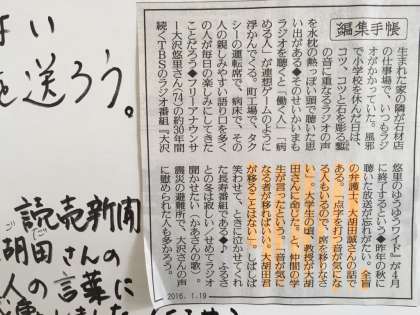 編集手帳
生まれた家の隣が石材店
の仕事場で、いつもラジ
オがかかっていた。風邪
で小学校を休んだ日は、
コツ、コツと石を彫る鑿
の音に重なるラジオの声
を水枕の熱っぽい頭で聴いた思
い出がある◆そのせいかいまも
ラジオを聴くと「働く人」「病
める人」が連想ゲームのように
浮かんでくる。町工場で、タク
シーの運転席で、病床で、その
人の親しみやすい語り口を多く
の人が毎日の楽しみにしてきた
ことだろう◆フリーアナウンサ
ー大沢悠里さん(74)の約30年間
続くTBSのラジオ番組『大沢
悠里のゆうゆうワイド』が4月
に終了するという◆昨年の秋に
聴いた放送が忘れがたい。全盲
の弁護士、大胡田誠さんの話で
ある。「点字を打つ音が気にな
る人もいるので、席を移りなさ
い」。大学生の頃、教授が大胡
田さんに命じた。と、仲間の学
生が言ったという。「音が気に
なる者が移ればいい。大胡田君
が移ることはない」。しばしば
笑わせて、ときに泣かせてくれ
た長寿番組である◆〈ふるさ
との冬は寂しい せめてラジオ
聞かせたい〉(かあさんの歌)。
震災の避難所で、大沢さんの声
に慰められた人も多かろう。
2016.1.19
い
送ろう。
読売新聞
胡田さんの
人の言葉に